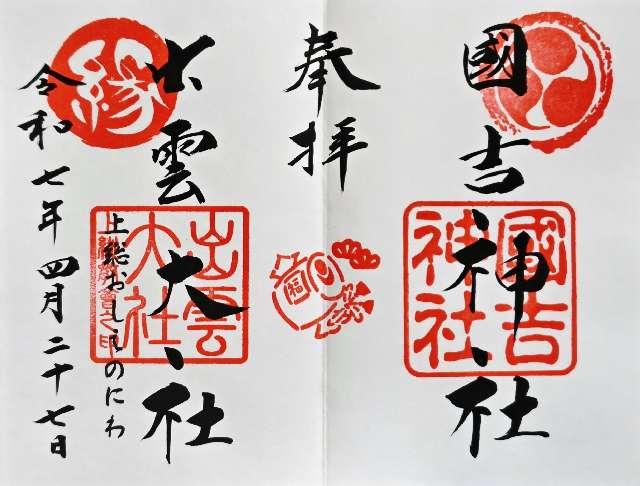 國吉神社
國吉神社
奉拝
福
出雲大社
縁
出雲大社
上総おしえのにわ
令和七年四月二十七日